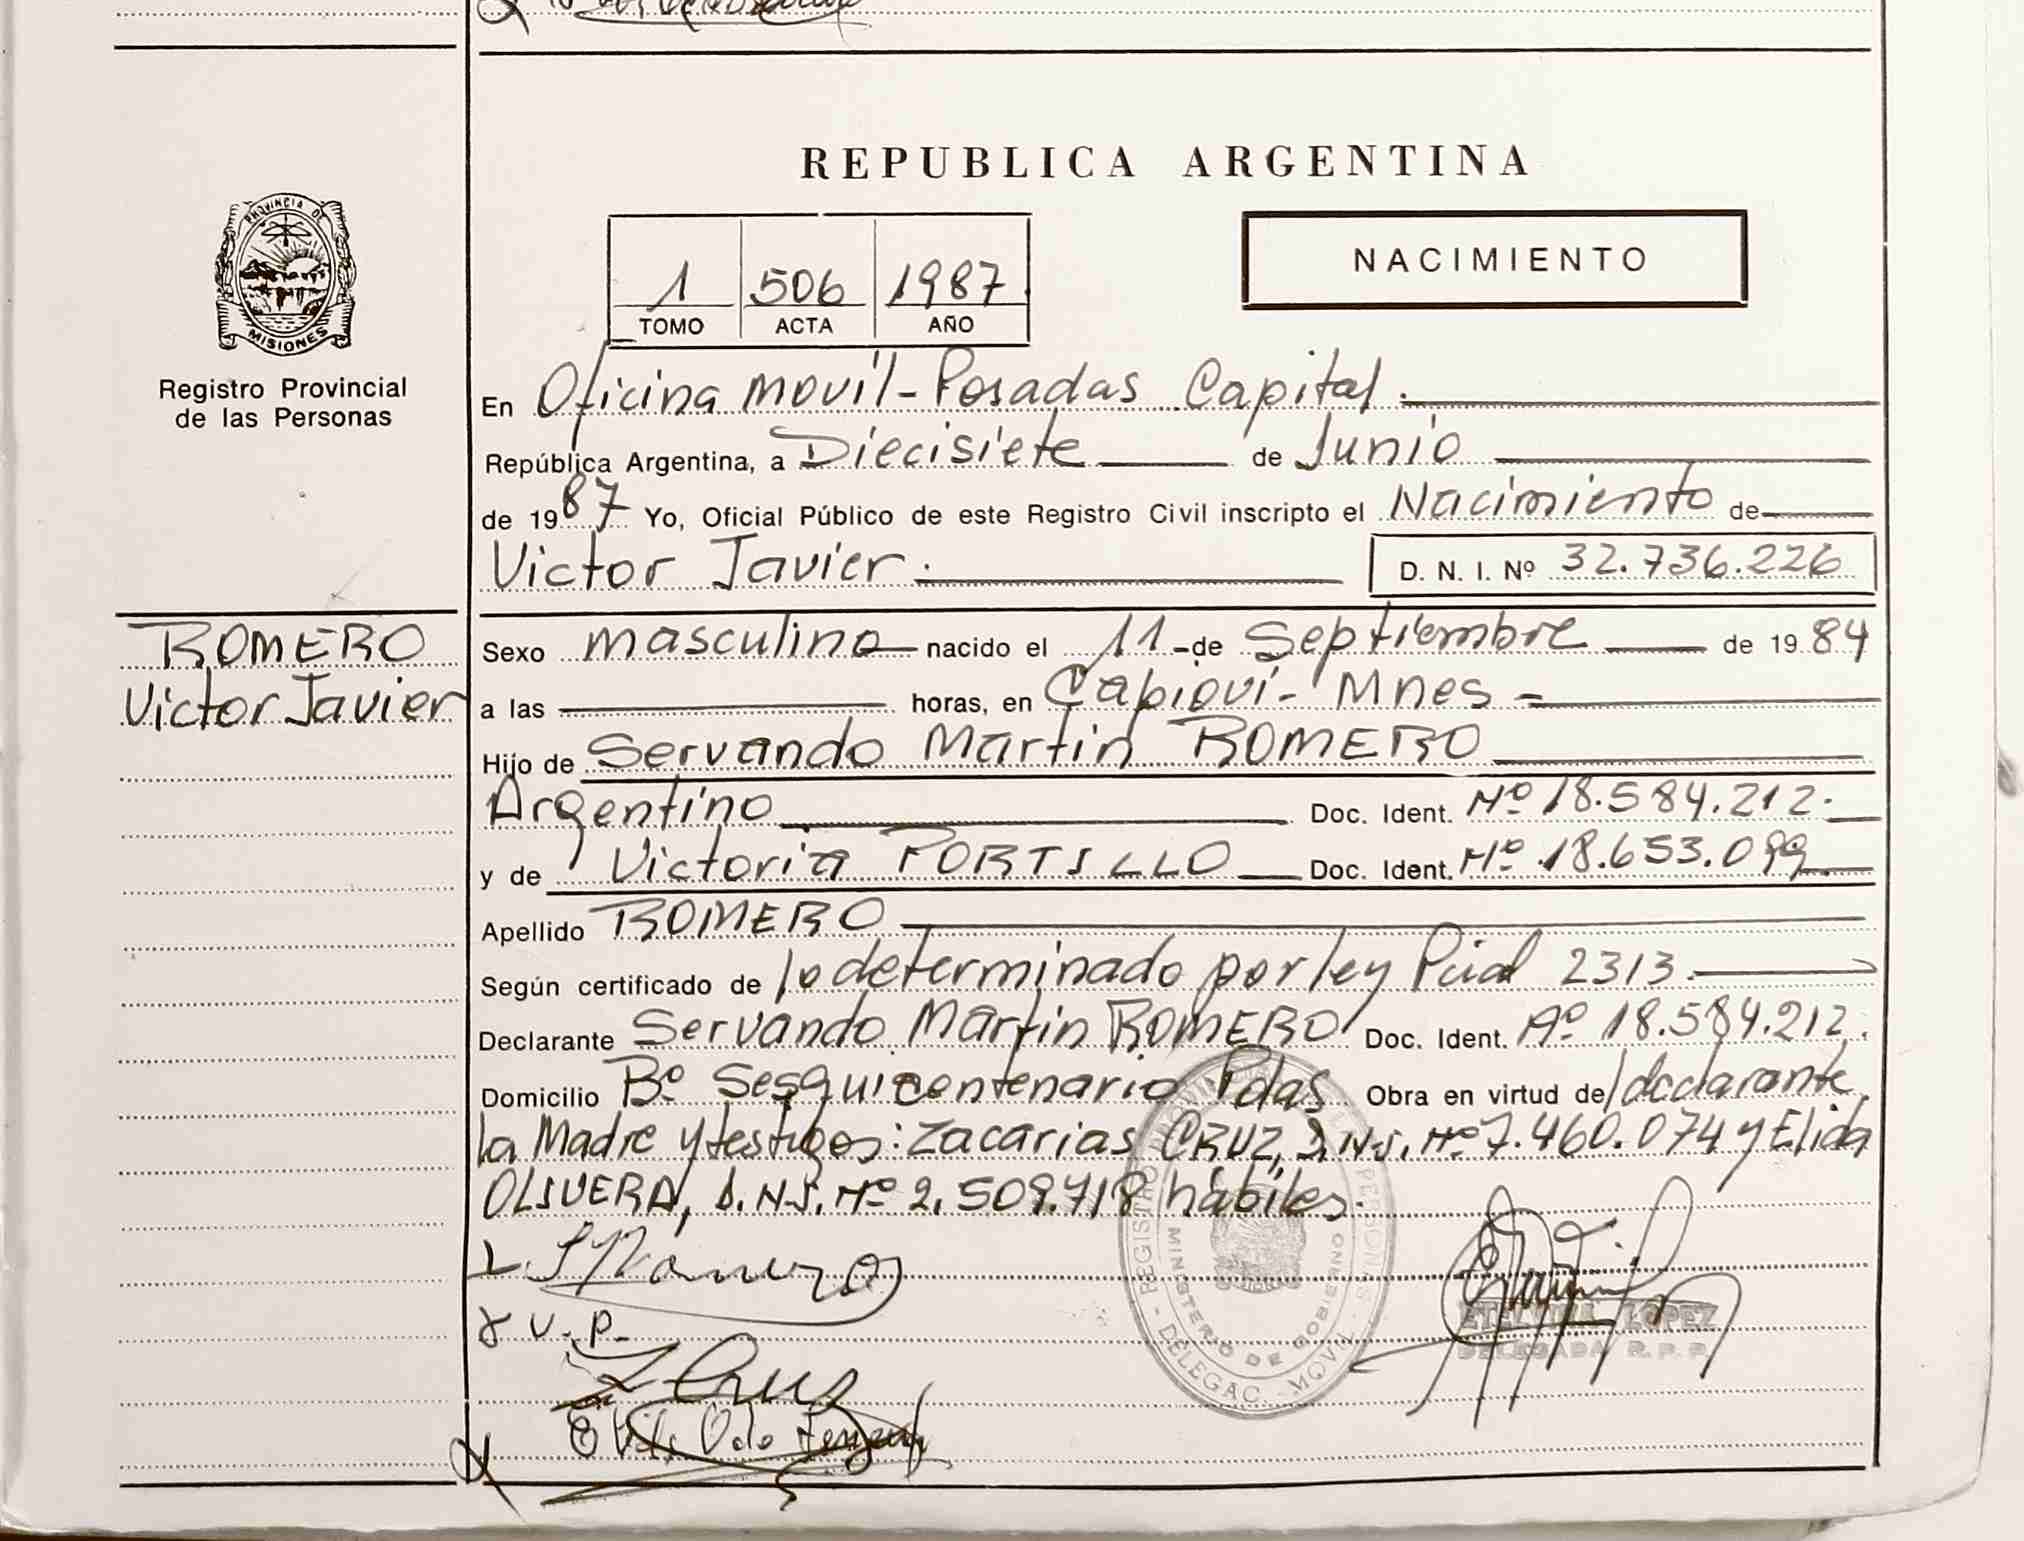 REPUBLICA ARGENTINA
PROVINCIA DE
MISIONES
Registro Provincial
de las Personas
1 506 1987
TOMO ACTA AÑO
NACIMIENTO
En Oficina movil-Posadas Capital.
República Argentina, a Diecisiete de Junio
de 1987 Yo, Oficial Público de este Registro Civil inscripto el Nacimiento de
Victor Javier. D. N. I. Nº 32.736.226
ROMERO
Victor Javier
Sexo masculino nacido el 11 de Septiembre de 1984
a las horas, en Capioví- Mnes -
Hijo de Servando Martin ROMERO
Argentino Doc. Ident. Nº 18.584.212.
y de Victoria PORTILLO Doc. Ident. Nº 18.653.099
Apellido ROMERO
Según certificado de lo determinado por ley Pcial 2313.
Declarante Servando Martin ROMERO Doc. Ident. Nº 18.584.212.
Domicilio Bº Sesquicentenario Pdas Obra en virtud de declarante
la Madre y testigos: Zacarias CRUZ, D.N.I. Nº 7.460.074 y Elida
OLIVERA, D.N.I. Nº 2.509.718 hábiles.
S Romero
V. P.
Z Cruz
REGISTRO PROVINCIAL DE LAS PERSONAS
MINISTERIO DE GOBIERNO
DELEGAC. MOVIL
ETELVINA LOPEZ
DELEGADA R. P. P.